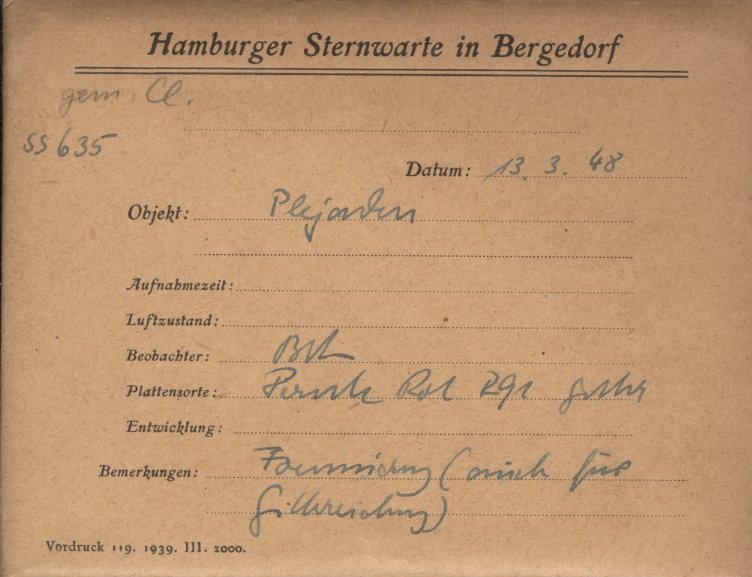 Hamburger Sternwarte in Bergedorf
gem. Cl.
SS 635
Datum: 13. 3. 48
Objekt: Plejaden
Aufnahmezeit:
Luftzustand:
Beobachter:
Plattensorte: Rot
Entwicklung:
Bemerkungen: Fokussierung (auch für
Eichung)
Vordruck 119. 1939. III. 2000.